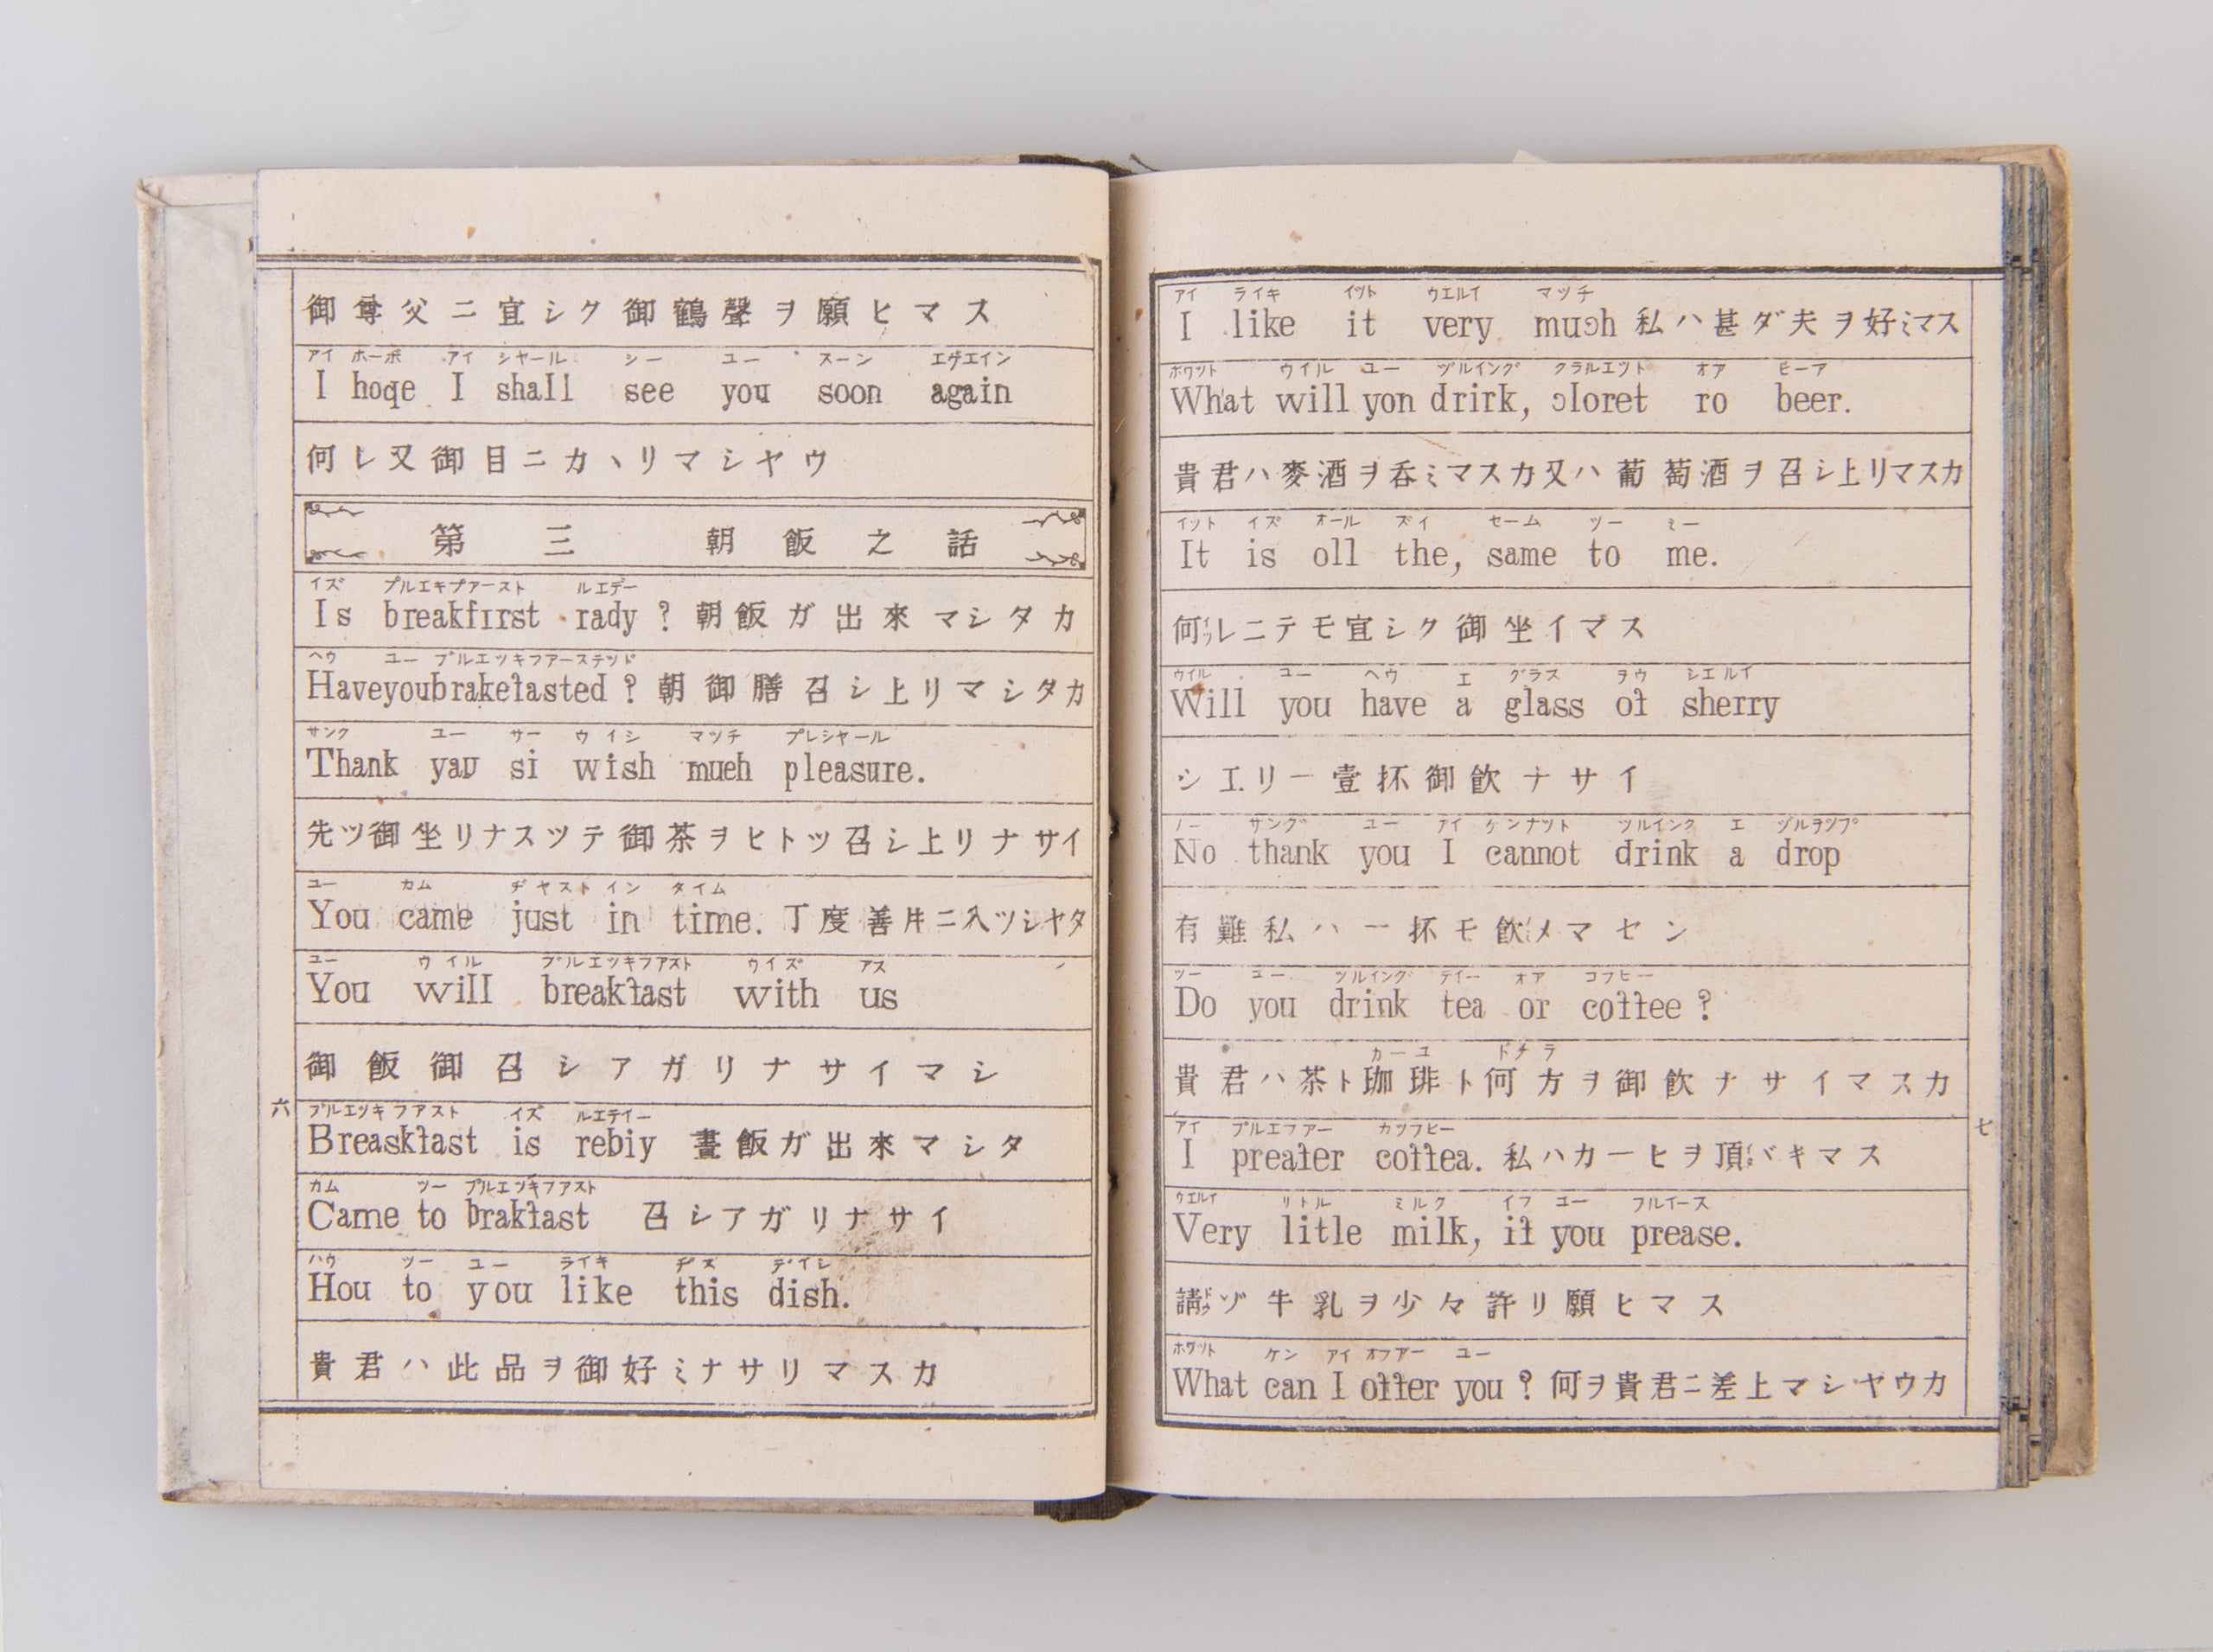 御尊父ニ宜シク御鶴聲ヲ願ヒマス
アイ ホーポ アイ シヤール シー ユー スーン エゲエイン
I hoqe I shall see you soon again
何レ又御目ニカヽリマシヤウ
第三 朝飯之話
イズ ブルエキフアースト ルエデー
Is breakfırst rady ? 朝飯ガ出來マシタカ
ヘウ ユー ブルエツキフアーステツド
Haveyoubrakefasted ? 朝御膳召シ上リマシタカ
サンク ユー サー ウイシ マツチ プレシヤール
Thank yau si wish mueh pleasure.
先ツ御坐リナスツテ御茶ヲヒトツ召シ上リナサイ
ユー カム ヂヤスト イン タイム
You came just in time. 丁度善片ニ入ツシヤタ
ユー ウイル ブルエツキフアスト ウイズ アス
You will breakfast with us
御飯御召シアガリナサイマシ
六
ブルエツキフアスト イズ ルエデイー
Breaskfast is rebiy 晝飯ガ出來マシタ
カム ツー ブルエツキフアスト
Came to brakfast 召シアガリナサイ
ハウ ツー ユー ライキ ヂズ デイシ
Hou to you like this dish.
貴君ハ此品ヲ御好ミナサリマスカ
アイ ライキ イツト ウエルイ マツチ
I like it very muɔh 私ハ甚ダ夫ヲ好ミマス
ホワツト ウイル ユー ヅルイング クラルエツト オア ビーア
What will yon drirk, ɔloret ro beer.
貴君ハ麥酒ヲ呑ミマスカ又ハ葡萄酒ヲ召シ上リマスカ
イツト イズ オール ズイ セーム ツー ミー
It is oll the, same to me.
何レニテモ宜シク御坐イマス
ウイル ユー ヘウ エ グラス ヲウ シエルイ
Will you have a glass of sherry
シエリー壹抔御飲ナサイ
ノー サング ユー アイ ケンナツト ヅルインク エ ヅルヲツプ
No thank you I cannot drink a drop
有難私ハ一抔モ飲メマセン
ツー ユー ツルイング テイー オア コフヒー
Do you drink tea or coffee ?
カーヒ ドチラ
貴君ハ茶ト珈琲ト何方ヲ御飲ナサイマスカ
七
アイ プルエフアー カツフヒー
I preafer coffea. 私ハカーヒヲ頂バキマス
ウエルイ リトル ミルク イフ ユー フルイース
Very litle milk, if you prease.
請ゾ牛乳ヲ少々許リ願ヒマス
ホワツト ケン アイ オフアー ユー
What can I offer you ? 何ヲ貴君ニ差上マシヤウカ